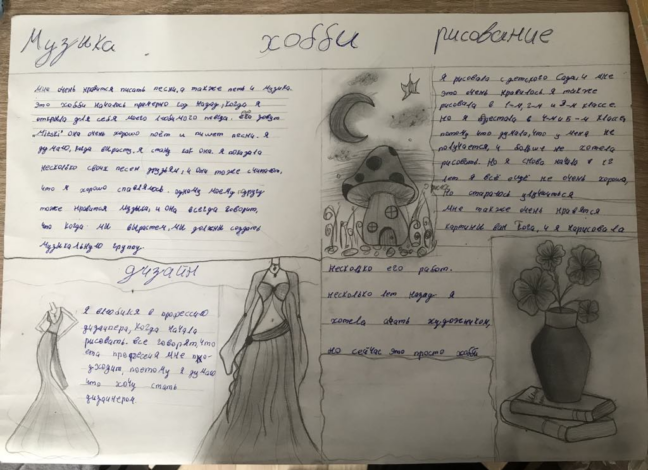 Музыка
хобби
рисование
Мне очень нравится писать песни, а также петь и музыка.
Это хобби началось примерно год назад, когда я
открыла для себя моего любимого певца. его зовут
она очень хорошо поёт и пишет песни. я
думаю, когда вырасту, я стану как она. я показала
несколько своих песен друзьям, и они тоже считают,
что я хорошо справляюсь. одному моему другу
тоже нравится музыка, и она всегда говорит,
что когда мы вырастем, мы должны создать
музыкальную группу.
Я рисовала с детского сада, и мне
это очень нравилось я также
рисовала в 1-м, 2-м и 3-м классе.
Но я бросила в 4-м и 5-м классе,
потому что думала, что у меня не
получается, и больше не хотела
рисовать. Но я снова начала в
лет я всё ещё не очень хороша,
Но стараюсь улучшиться
Мне также очень нравятся
картины Ван Гога, и я нарисовала
несколько его работ.
несколько лет назад я
хотела стать художником,
но сейчас это просто хобби
дизайн
Я влюбился в профессию
дизайнера, когда начала
рисовать. все говорят, что
эта профессия мне подо-
ходит, поэтому я думаю
что хочу стать
дизайнером